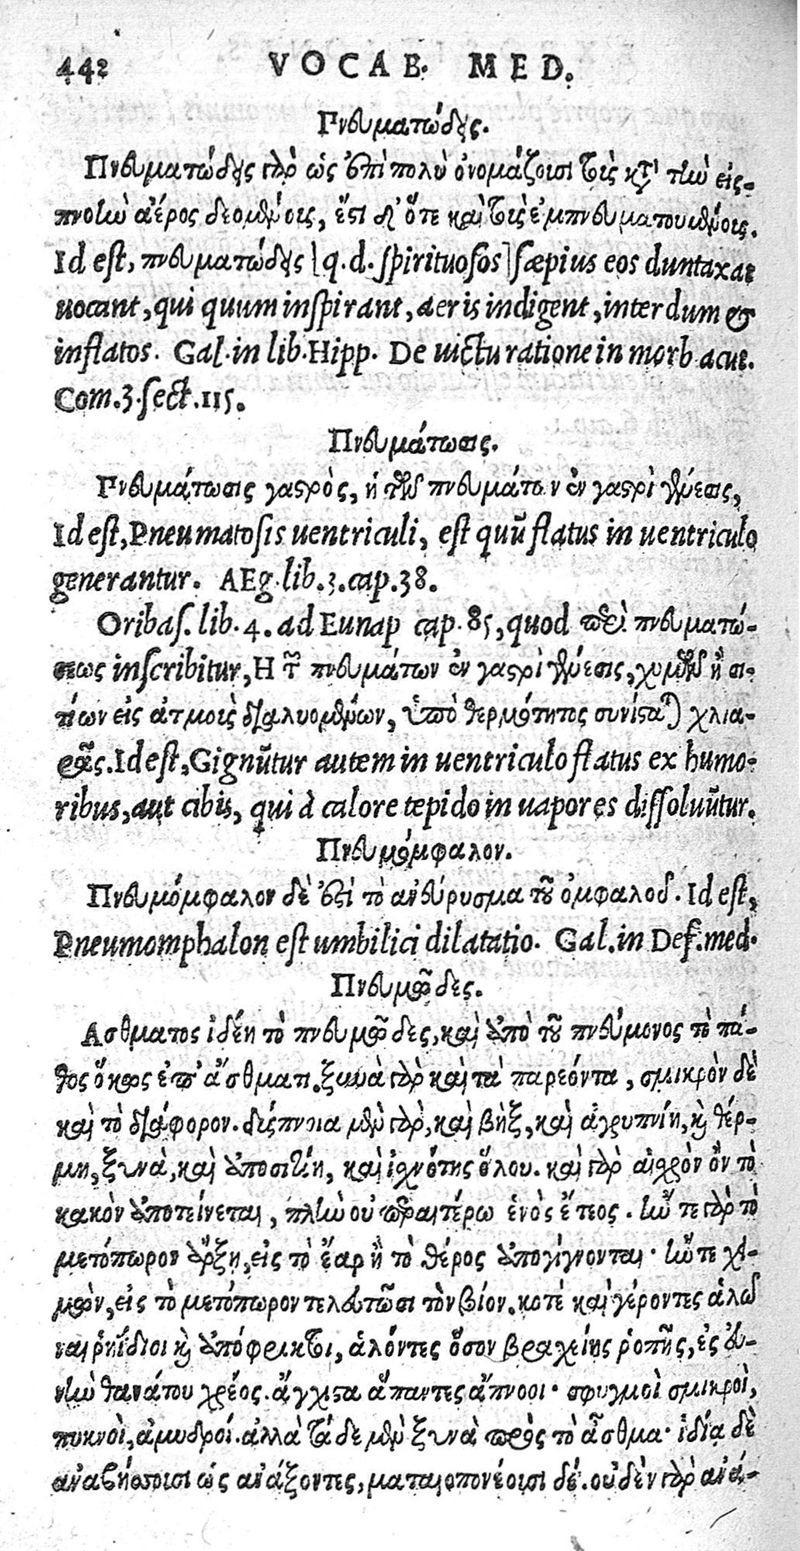 442 VOCAB. MED.
Πνευματώδης.
Πνευματώδεις γὰρ ὡς ἐπὶ πολὺ ὀνομάζουσι τοὺς κατ' τὴν εἰς-
πνοὴν ἀέρος δεομένους, ἔστι δ' ὅτε καὶ τοὺς ἐμπνευματουμένους.
Id est, πνευματώδεις [q. d. spirituosos] sæpius eos duntaxat
uocant, qui quum inspirant, aeris indigent, interdum &
inflatos. Gal. in lib. Hipp. De uictu ratione in morb acut.
Com. 3. sect. 115.
Πνευμάτωσις.
Πνευμάτωσις γαστρὸς, ἡ τῶν πνευμάτων ἐν γαστρὶ γένεσις,
Id est, Pneumatosis uentriculi, est quū flatus in uentriculo
generantur. AEg. lib. 3. cap. 38.
Oribas. lib. 4. ad Eunap cap. 85, quod περὶ πνευματώ-
σεως inscribitur, Η τῶν πνευμάτων ἐν γαστρὶ γένεσις, χυμῶν ἢ σι-
τίων εἰς ἀτμοὺς διαλυομένων, ὑπὸ θερμότητος συνίσταται χλια-
ρᾶς. Id est, Gignūtur autem in uentriculo flatus ex humo-
ribus, aut cibis, qui à calore tepido in uapores dissoluūtur.
Πνευμόμφαλον.
Πνευμόμφαλον δὲ ἐστὶ τὸ ἀνεύρυσμα τοῦ ὀμφαλοῦ. Id est,
Pneumomphalon est umbilici dilatatio. Gal. in Def. med.
Πνευμῶδες.
Ασθματος ἰδέη τὸ πνευμῶδες, καὶ ἀπὸ τοῦ πνεύμονος τὸ πά-
θος ὅκως ἐπ' ἄσθματι. ξυνὰ γὰρ καὶ τὰ παρεόντα, σμικρὸν δὲ
καὶ τὸ διάφορον. δύσπνοια μὲν γὰρ, καὶ βὴξ, καὶ ἀγρυπνίη, κ θέρ-
μη, ξυνὰ, καὶ ἀποσιτίη, καὶ ἰσχνότης ὅλου. καὶ γὰρ αἰσχρὸν ὂν τὸ
κακὸν ἀποτείνεται, πλὴν οὐ περαιτέρω ἑνὸς ἔτεος. ἢν τε γὰρ τὸ
μετόπωρον ἄρξῃ, εἰς τὸ ἔαρ ἢ τὸ θέρος ἀπογίγνονται. ἢν τε χει-
μὼν, εἰς τὸ μετόπωρον τελευτῶσι τὸν βίον. κοτὲ καὶ γέροντες ἁλῶ
ναι ῥηΐδιοι κ ἀπόφρικτοι, ἁλόντες ὅσον βραχείης ῥοπῆς, ἐς εὐ-
νὴν θανάτου χρέος. ἄγχιστα ἅπαντες ἄπνοοι. σφυγμοὶ σμικροὶ,
πυκνοὶ, ἀμυδροί. ἀλλὰ τάδε μὲν ξυνὰ πρὸς τὸ ἄσθμα. ἰδίᾳ δὲ
ἀναβήσσουσι ὡς ἀνάξοντες, ματαιοπονέουσι δέ. οὐδὲν γὰρ ἀνά-